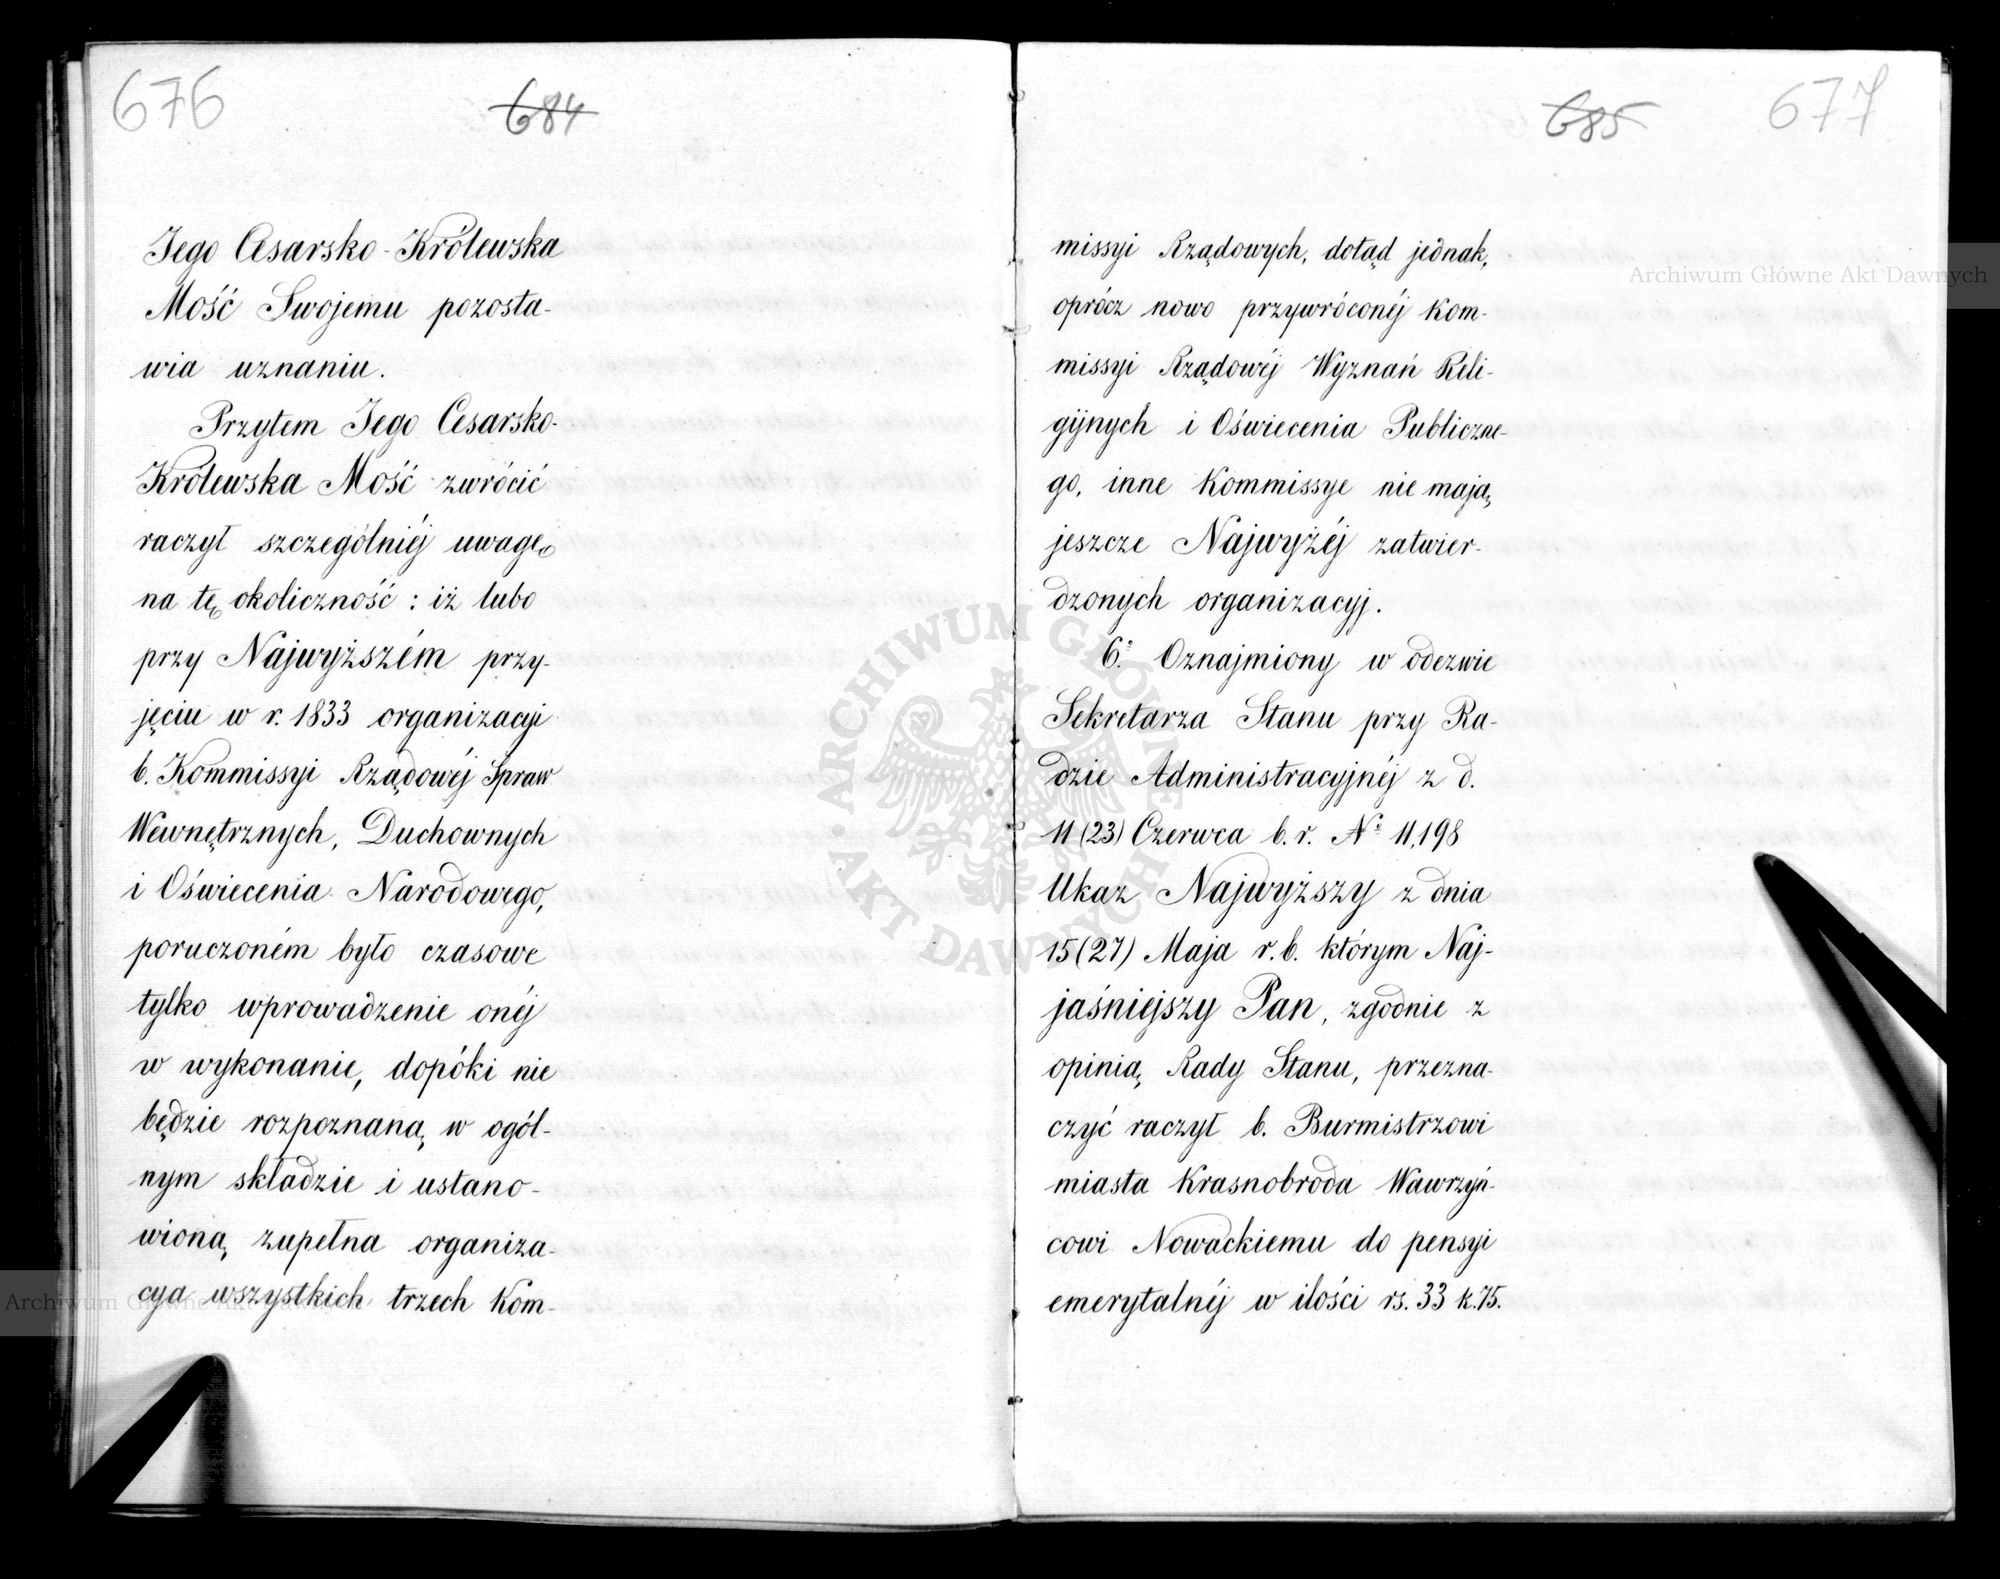 676
684
Jego Cesarsko-Królewska
Mość Swojemu pozosta-
wia uznaniu.
Przytem Jego Cesarsko-
Królewska Mość zwrócić
raczył szczególniéj uwagę
na tę okoliczność: iż lubo
przy Najwyższém przy-
jęciu w r. 1833 organizacyi
b. Kommissyi Rządowéj Spraw
Wewnętrznych, Duchownych
i Oświecenia Narodowego,
poruczoném było czasowe
tylko wprowadzenie onéj
w wykonanie, dopóki nie
będzie rozpoznaną w ogól-
nym składzie i ustano-
wioną zupełna organiza-
cya wszystkich trzech Kom-
685
677
missyi Rządowych, dotąd jednak,
oprócz nowo przywróconéj Kom-
missyi Rządowéj Wyznań Reli-
gijnych i Oświecenia Publiczne-
go, inne Kommissye nie mają
jeszcze Najwyżéj zatwier-
dzonych organizacyj.
6.° Oznajmiony w odezwie
Sekretarza Stanu przy Ra-
dzie Administracyjnéj z d.
11 (23) Czerwca b. r. N° 11,198
Ukaz Najwyższy z dnia
15 (27) Maja r. b. którym Naj-
jaśniejszy Pan, zgodnie z
opinią Rady Stanu, przezna-
czyć raczył b. Burmistrzowi
miasta Krasnobroda Wawrzyń-
cowi Nowackiemu do pensyi
emerytalnéj w ilości rs. 33 k. 75.
Archiwum Główne Akt Dawnych
Archiwum Główne Akt Dawnych
ARCHIWUM GŁÓWNE AKT DAWNYCH